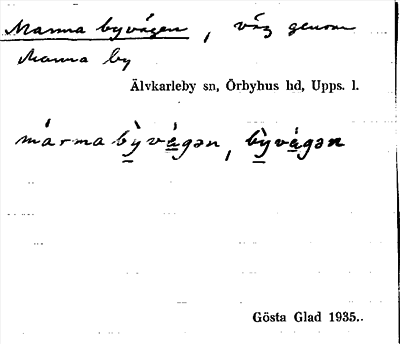 Marma byvägen, väg genom
Marma by
Älvkarleby sn, Örbyhus hd, Upps. l.
màrma bỳvágən, bỳvágən
Gösta Glad 1935..